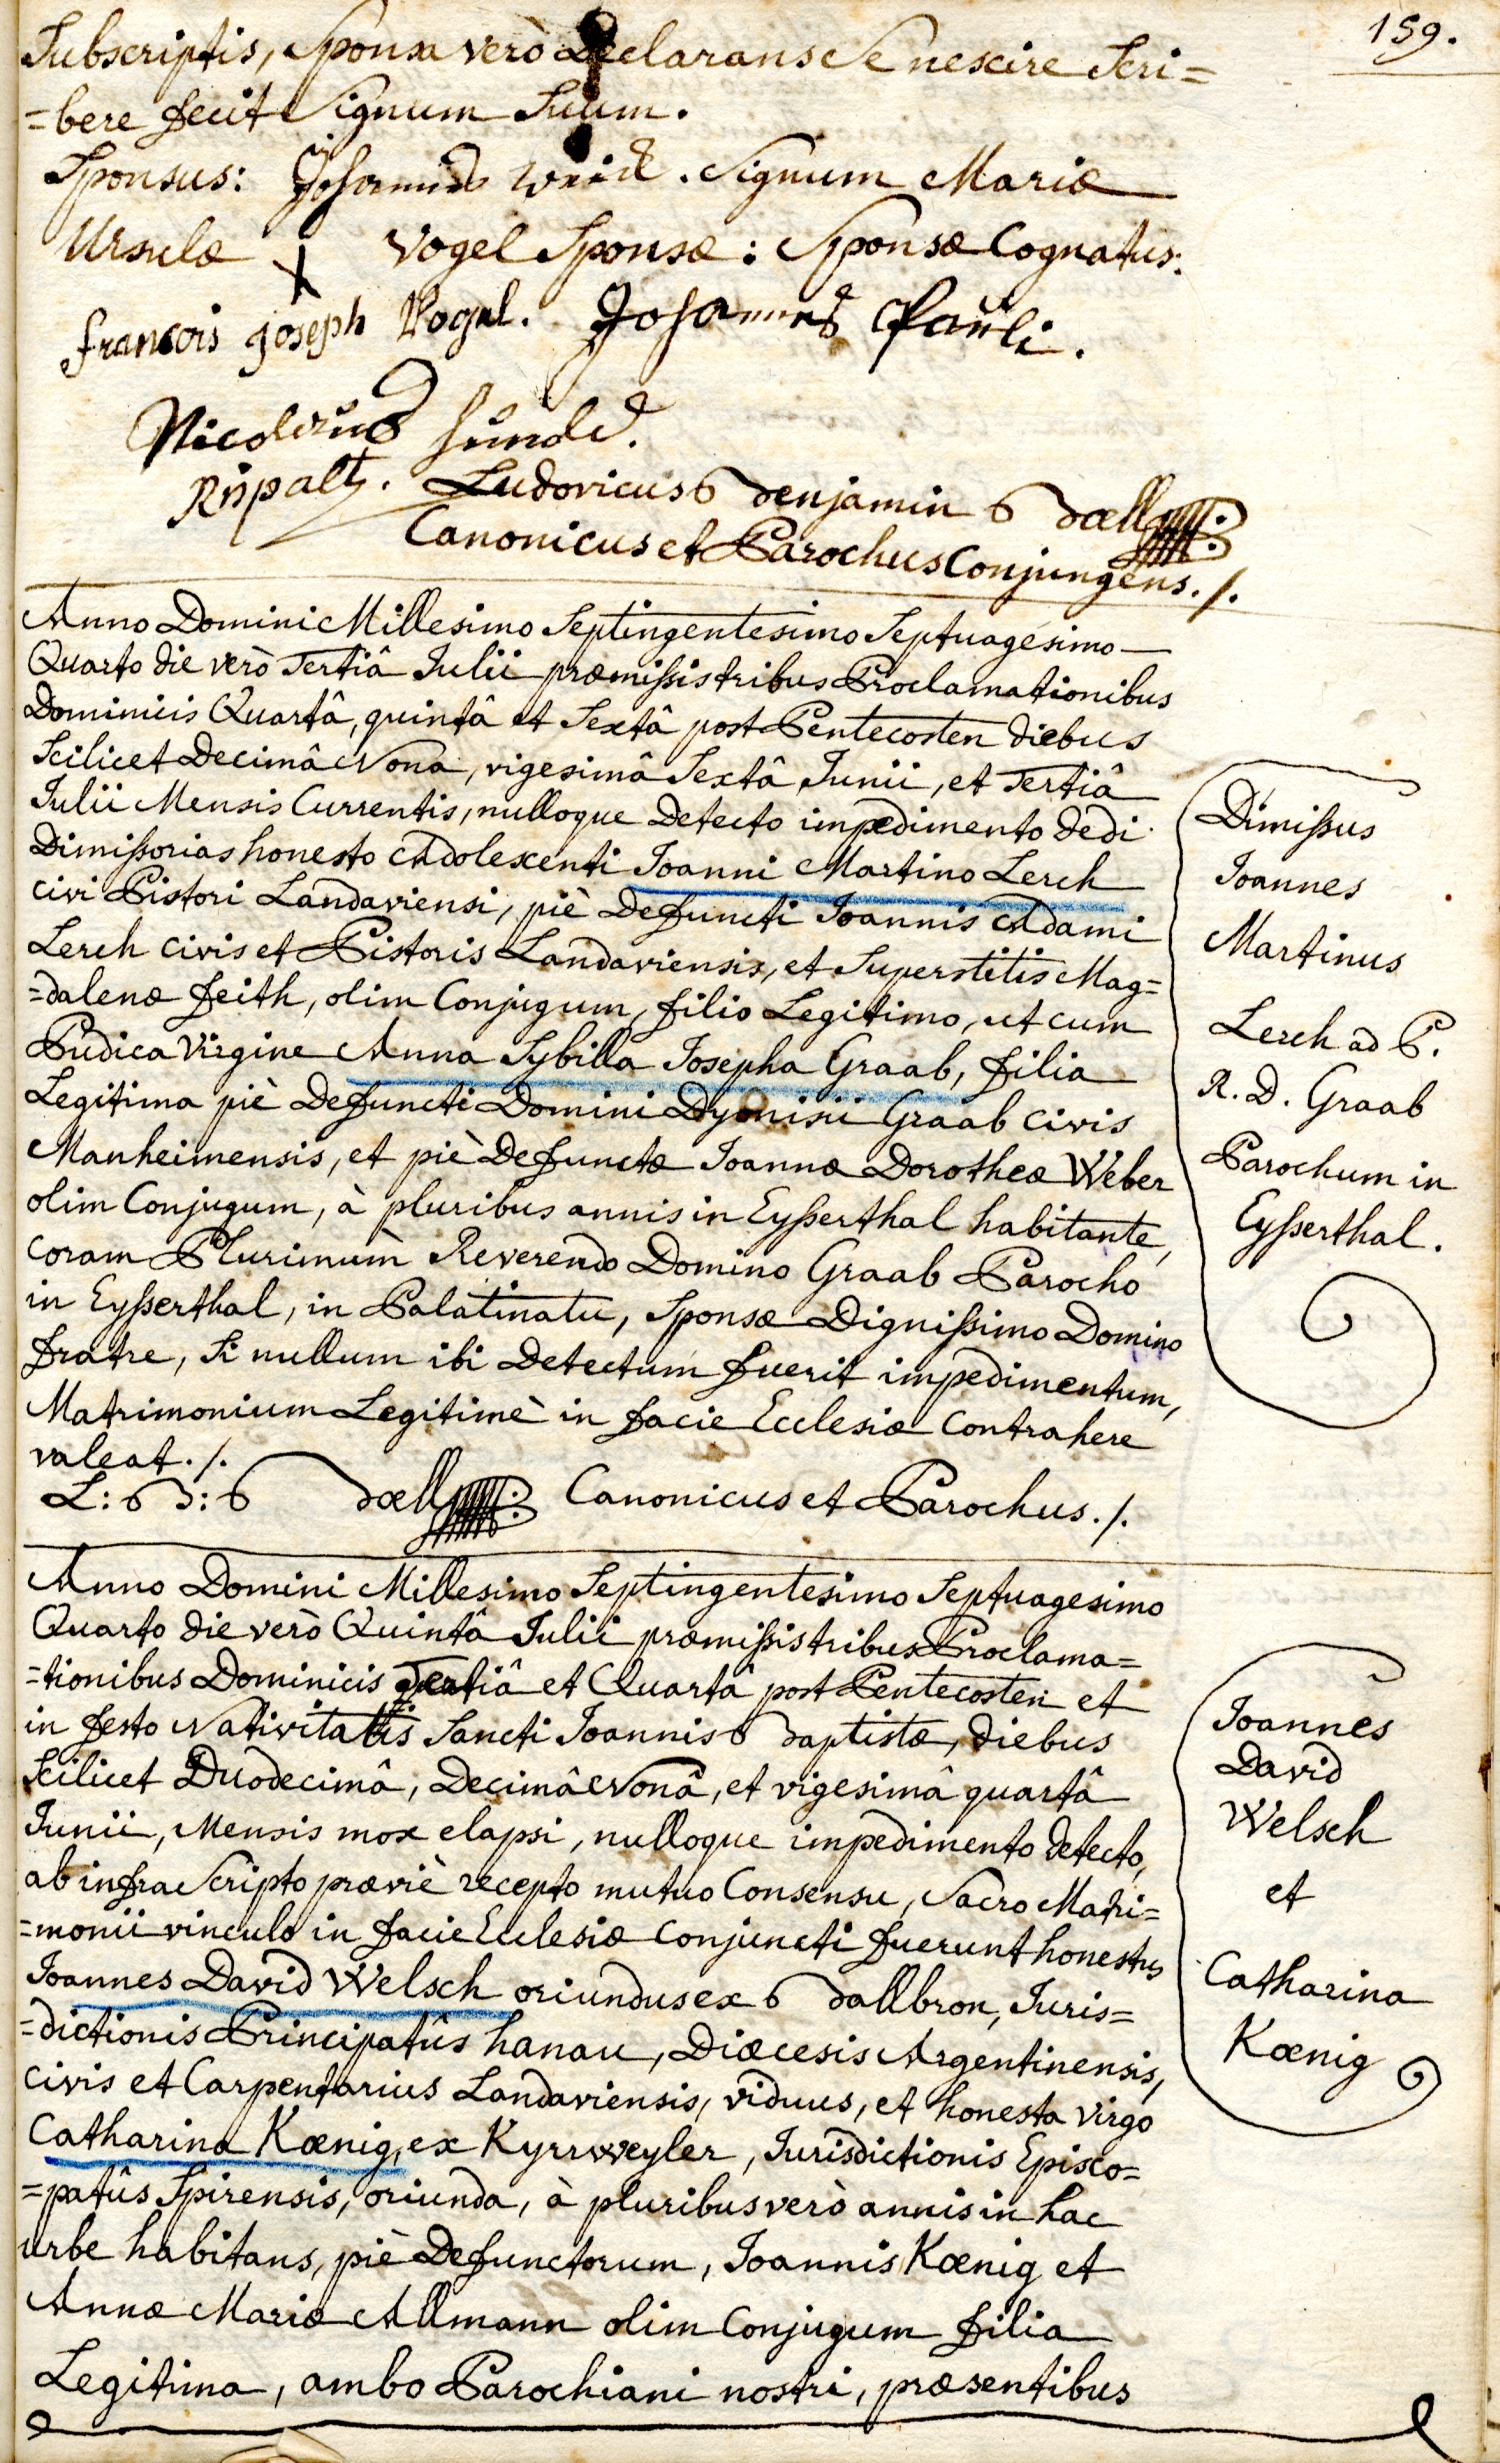 159.
Subscriptis, Sponsa verò declarans se nescire scri=
=bere fecit Signum Suum.
Sponsus: Johannes Weick. Signum Mariæ
Ursulæ X Vogel Sponsæ: Sponsæ Cognatus:
francois joseph Vogel. Johannes Pauli.
Nicolaus
Ludovicus Benjamin Bœll
Canonicus et Parochus Conjungens./.
Anno Domini Millesimo Septingentesimo Septuagesimo
Quarto die verò Tertiâ Julii præmissis tribus Proclamationibus
Dominicis Quartâ, quintâ et Sextâ post Pentecosten diebus
Scilicet Decimâ Nona, vigesimâ Sextâ Junii, et Tertiâ
Julii Mensis Currentis, nulloque Detecto impedimento dedi
Dimissorias honesto Adolescenti Joanni Martino Lerch
Civi Pistori Landaviensi, piè Defuncti Joannis Adami
Lerch civis et Pistoris Landaviensis, et Superstitis Mag=
=dalenæ feith, olim Conjugum, filio Legitimo, ut cum
Pudica Virgine Anna Sybilla Josepha Graab, filia
Legitima piè Defuncti Domini Dyonisii Graab civis
Manheimensis, et piè Defunctæ Joannæ Dorotheæ Weber
olim Conjugum, à pluribus annis in Eysserthal habitante,
coram Plurimùm Reverendo Domino Graab Parocho
in Eysserthal, in Palatinatu, Sponsæ Dignissimo Domino
fratre, Si nullum ibi Detectum fuerit impedimentum,
Matrimonium Legitimè in facie Ecclesiæ Contrahere
valeat./.
L: B: Bœll Canonicus et Parochus./.
Dimissus
Joannes
Martinus
Lerch ad P.
R. D. Graab
Parochum in
Eysserthal.
Anno Domini Millesimo Septingentesimo Septuagesimo
Quarto die verò Quintâ Julii præmissis tribus Proclama=
=tionibus Dominicis Tertiâ et Quartâ post Pentecosten et
in festo Nativitatis Sancti Joannis Baptistæ, diebus
Scilicet Duodecimâ, Decimâ Nonâ, et vigesimâ quartâ
Junii, Mensis mox elapsi, nulloque impedimento detecto,
ab infra Scripto præviè recepto mutuo Consensu, Sacro Matri=
=monii vinculo in facie Ecclesiæ Conjuncti fuerunt honestus
Joannes David Welsch oriundus ex Ballbron, Juris=
=dictionis Principatûs hanau, Diœcesis Argentinensis,
Civis et Carpentarius Landaviensis, viduus, et honesta virgo
Catharina Kœnig, ex Kyrrweyler, Jurisdictionis Episco=
=patûs Spirensis, oriunda, à pluribus verò annis in hac
urbe habitans, piè Defunctorum, Joannis Kœnig et
Annæ Mariæ Allmann olim Conjugum filia
Legitima, ambo Parochiani nostri, præsentibus
Joannes
David
Welsch
et
Catharina
Kœnig